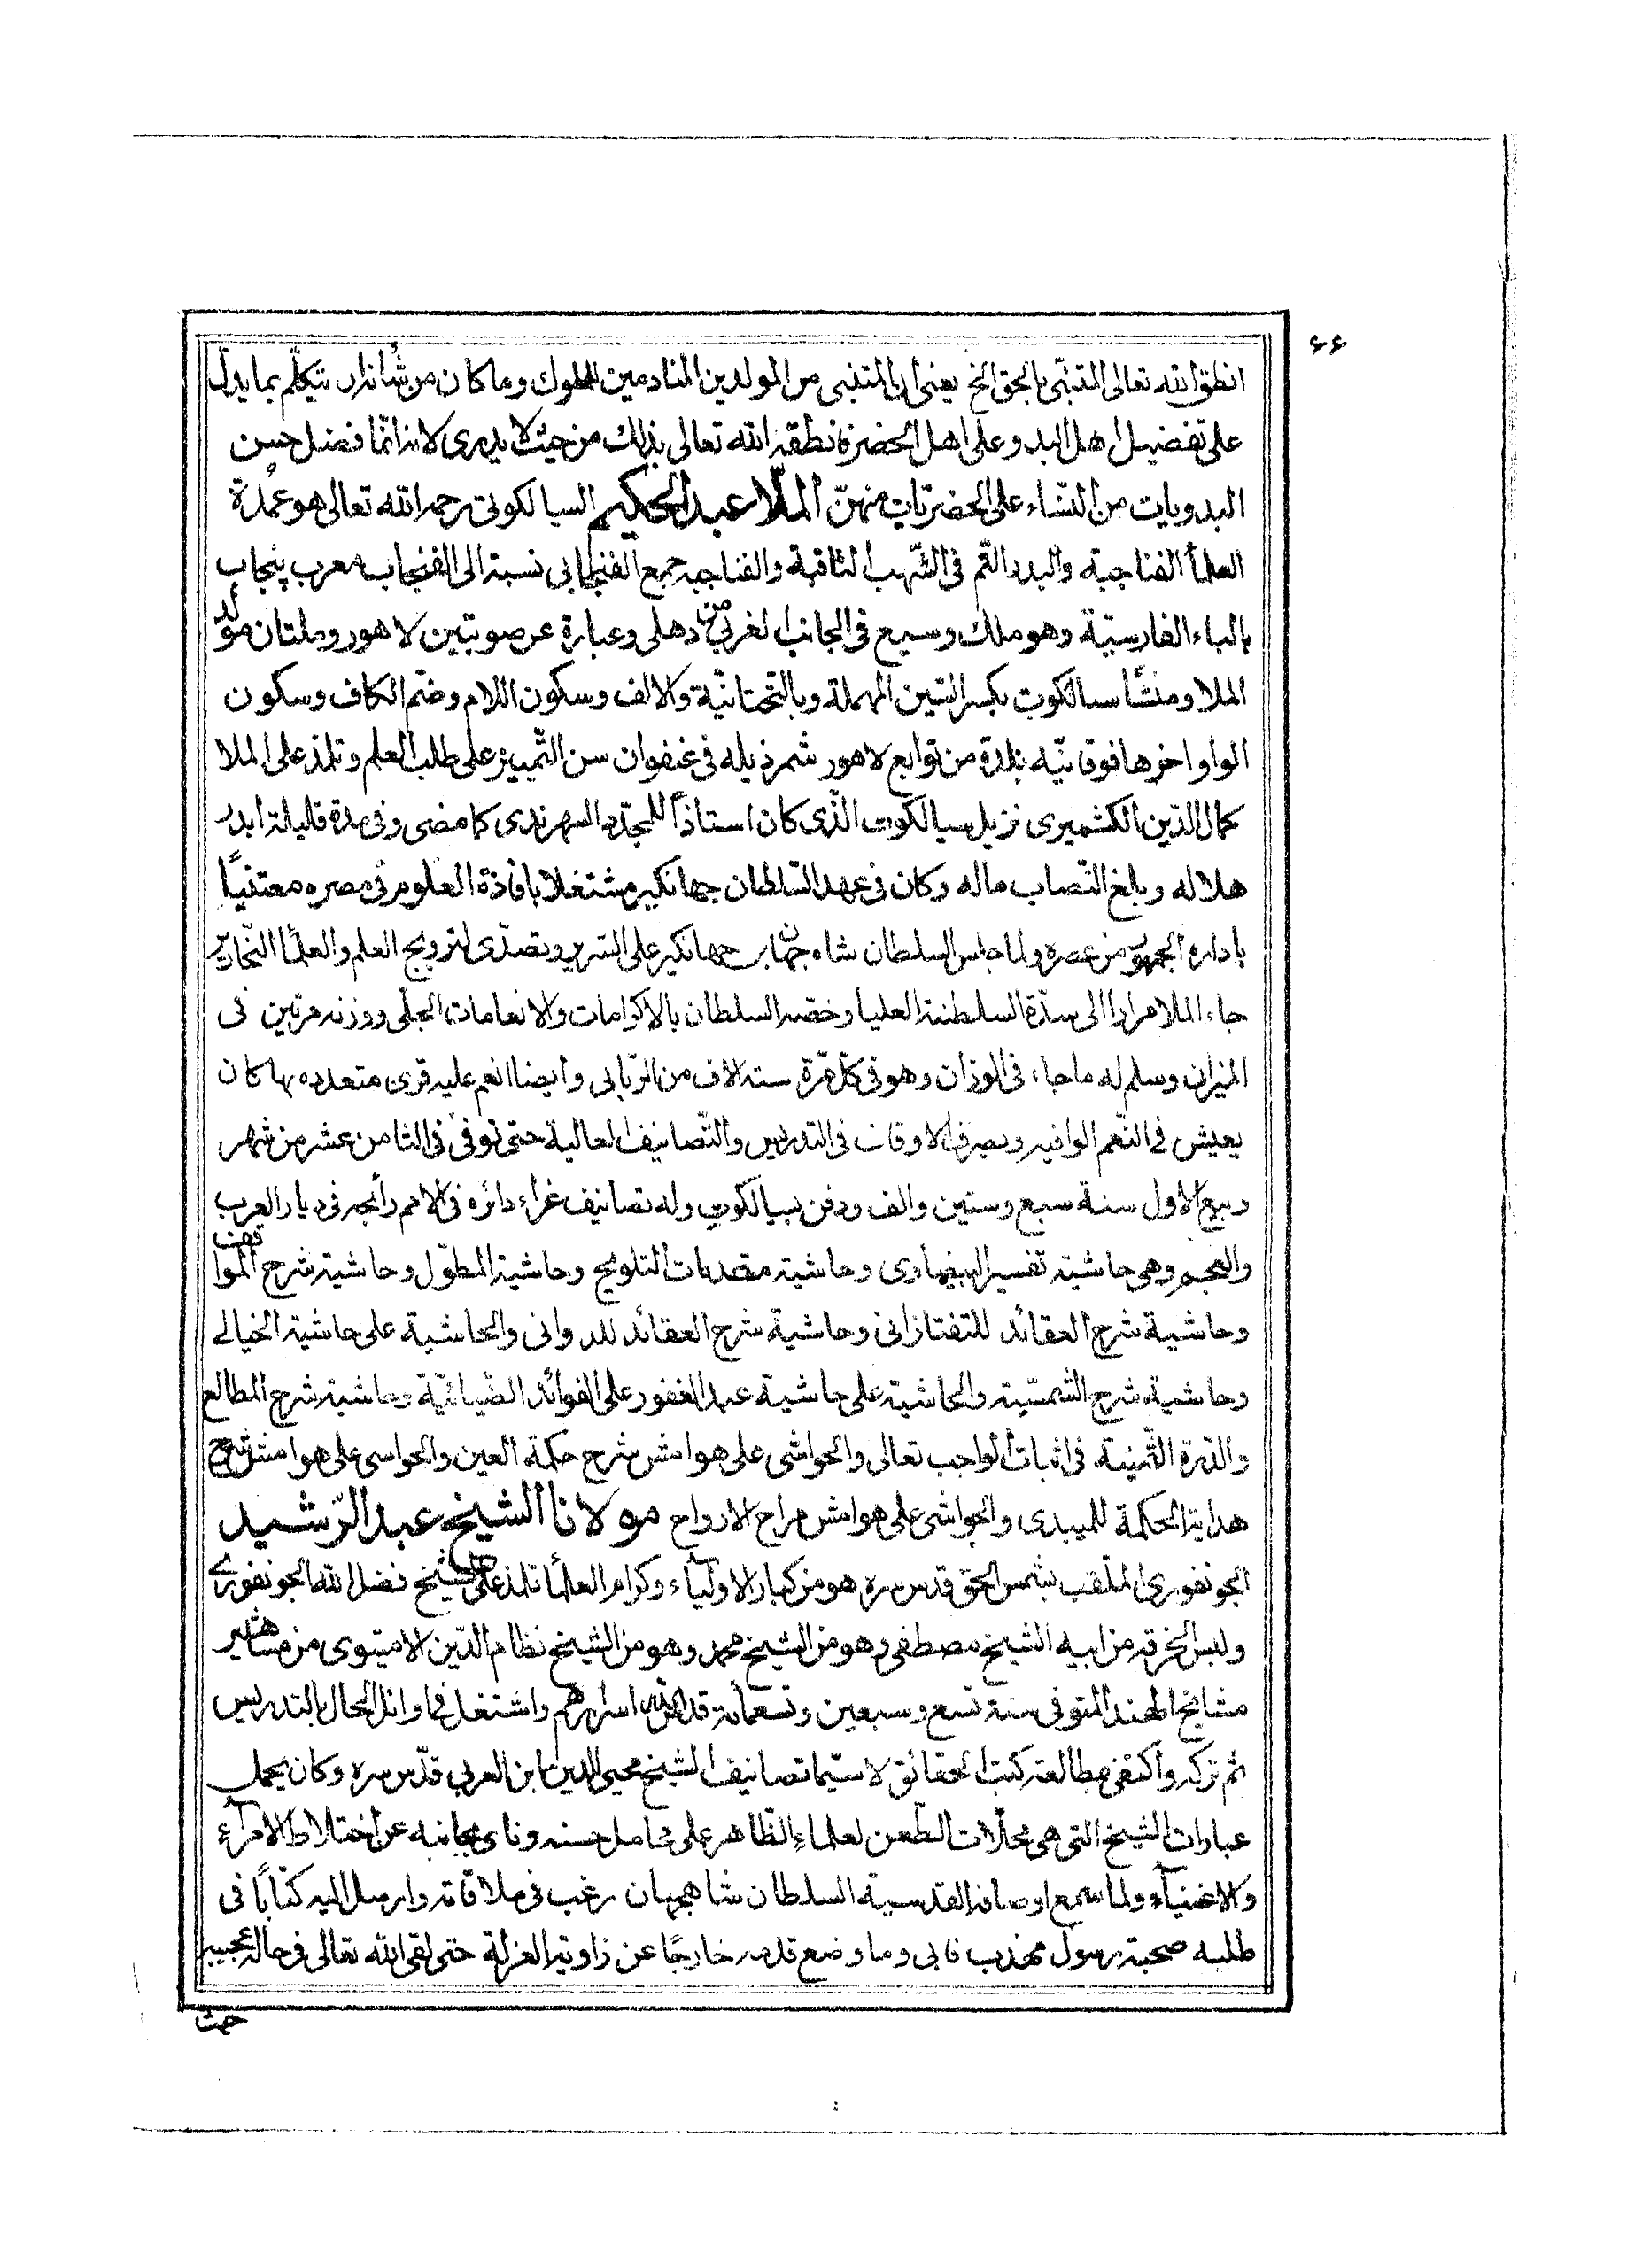 ٦٦
انطق الله تعالى المتنبّي بالحق الخ يعنى ان المتنبي من المولدين المنادمين للملوك وما كان من شأنه ان يتكلّم بما يدلّ
على تفضيل اهل البدو على اهل الحضر فانطقه الله تعالى بذلك من حيث لا يدرى لانه انّما فضل حسن
البدويات من النساء على الحضريّات منهنّ الملّا عبد الحكيم السيالكوتى رحمه الله تعالى هو عمدة
العلمأ الفناجبة والبدر التّم فى الشّهب الثاقبة والفناجبه جمع الفنجابى نسبة الى الفنجاب معرب پنجاب
بالباء الفارسيّة وهو ملك وسيع فى الجانب الغربي من دهلى وعبارة عن صوبتين لاهور وملتان مولد
الملا ومنشأ سيالكوت بكسر السّين المهملة وبالتّحتانيّة والالف وسكون اللام وضمّ الكاف وسكون
الواو اخرها فوقانيّه بلدة من توابع لاهور شمر ذيله فى عنفوان سن التّمييز على طلب العلم وتلمذ على الملا
كمال الدّين الكشميرى نزيل سيالكوت الّذى كان استاذاً للمجدّد السهرندى كما مضى وفى مدة قليلة ابدر
هلاله وبلغ النّصاب ماله وكان فى عهد السّلطان جهانكير مشتغلا بافادة العلوم فى مصره معتنيًا
بادارة من عصره ولما جلس السلطان شاه جهان بن جهانكير على السرير وتصدّى لترويج العلم والعلمأ النّحارير
جاء الملا مرارا الى سدّة السلطنة العليا وخصّه السلطان بالاكرامات والانعامات الجلّى ووزنه مرّتين فى
الميزان وسلم له ما جاء فى الوزان وهو فى كلّ مرّة سته الاف من الرّبابى وأيضا انعم عليه قرى متعدده بها كان
يعيش فى النّعم الوافيه ويصرف الاوقات فى التدريس والتّصانيف العالية حتى توفى فى الثامن عشر من شهر
ربيع الاول سنة سبع وستين والف ودفن بسيالكوت وله تصانيف غراء دائره فى الامم رأيجه فى ديار العرب
والعجم وهى حاشية تفسير البيضاوى وحاشية مقدمات التلويح وحاشية المطوّل وحاشية شرح المواقف
وحاشية شرح العقائد للتفتازانى وحاشية شرح العقائد للدوانى والحاشية على حاشية الخيالے
وحاشية شرح الشّمسيّة والحاشية على حاشية عبد الغفور على الفوائد الضّيائيّة وحاشية شرح المطالع
والدّرة الثّمينة فى اثبات الواجب تعالى والحواشى على هوامش شرح حكمة العين والحواسى على هوامش شرح
هداية الحكمة للميبدى والحواشى على هوامش مراح الارواح مولانا الشيخ عبد الرّشيد
الجونفورى الملقب بشمس الحق قدس سره هو من كبار الاوليآء وكرام العلمأ تلمذ على الشيخ فضل الله الجونفورے
ولبس الخرقه من ابيه الشيخ مصطفى وهو من الشيخ محمد وهو من الشيخ نظام الدّين الاميتوى من مشاهير
مشايخ الهند المتوفى سنة تسع وسبعين وتسعمأئة قدس الله اسرارهم واشتغل فى اوائل الحال بالتدريس
ثم تركه واكتفى بمطالعة كتب الحقائق لا سيّما تصانيف الشيخ محيى الدين ابن العربي قدّس سره وكان يحمل
عبارات الشيخ التى هى محلّات الطّعن لعلماءِ الظّاهر على محامل حسنه ونأى بجانبه عن اختلاط الامرآء
والاغنيآء ولما سمع اوصافه القدسية السلطان شاهجهان رغب فى ملاقاته وارسل اليه كتابًا فى
طلبه صحبة رسول مهذب فابى وما وضع قدمه خارجًا عن زاوية العزلة حتى لقى الله تعالى فى حالة عجيبه
حيث